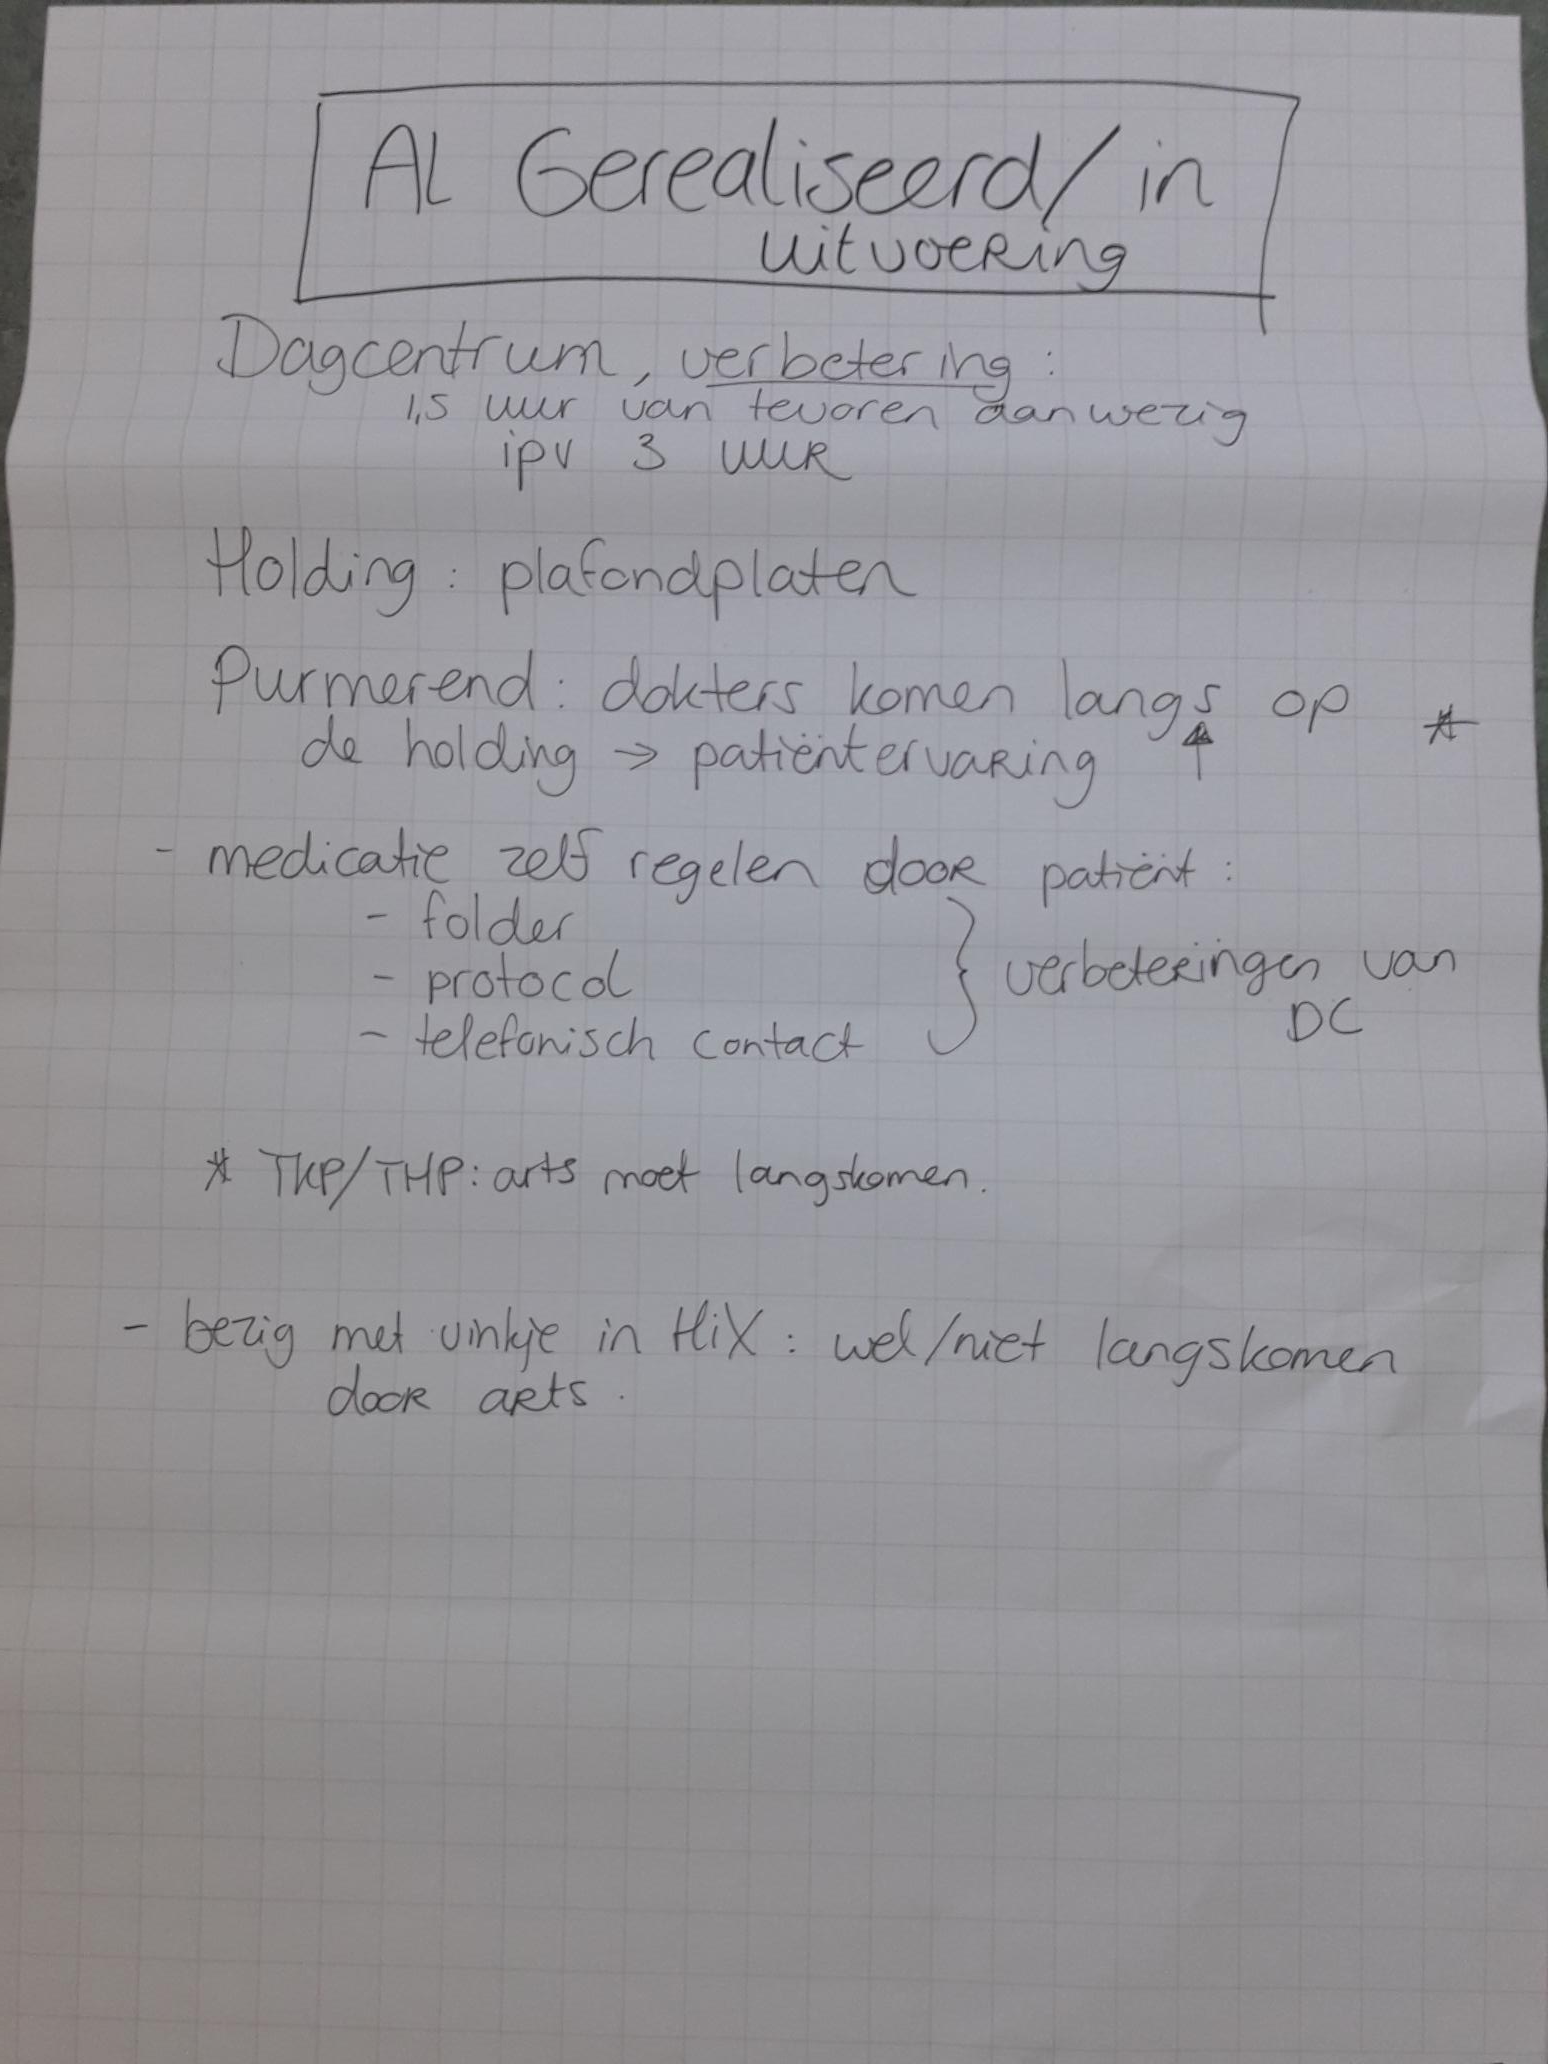 AL Gerealiseerd/in
uitvoering
Dagcentrum, verbetering:
1,5 uur van tevoren aanwezig
ipv 3 uur
Holding: plafondplaten
Purmerend: dokters komen langs op *
de holding → patiëntervaring ↑
- medicatie zelf regelen door patiënt:
- folder
- protocol
- telefonisch contact
} verbeteringen van
DC
* TKP/THP: arts moet langskomen.
- bezig met vinkje in HiX: wel/niet langskomen
door arts.